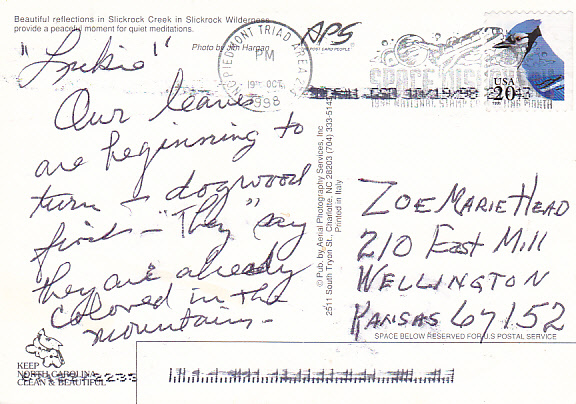 Beautiful reflections in Slickrock Creek in Slickrock Wilderness
provide a peaceful moment for quiet meditations.
Photo by Jim Hargan
APS
POST CARD PEOPLE
PIEDMONT TRIAD AREA
PM
19 OCT
1998
USA
20
1998 NATIONAL STAMP COLLECTING MONTH
Our leaves
are beginning to
turn - dogwood
first - "They" say
they are already
colored in the
mountains -
© Pub. by Aerial Photography Services, Inc.
2511 South Tryon St., Charlotte, NC 28203 (704) 333-5143
Printed in Italy
ZOE MARIE HEAD
210 EAST Mill
WELLINGTON
KANSAS 67152
SPACE BELOW RESERVED FOR U.S POSTAL SERVICE
KEEP
NORTH CAROLINA
CLEAN & BEAUTIFUL